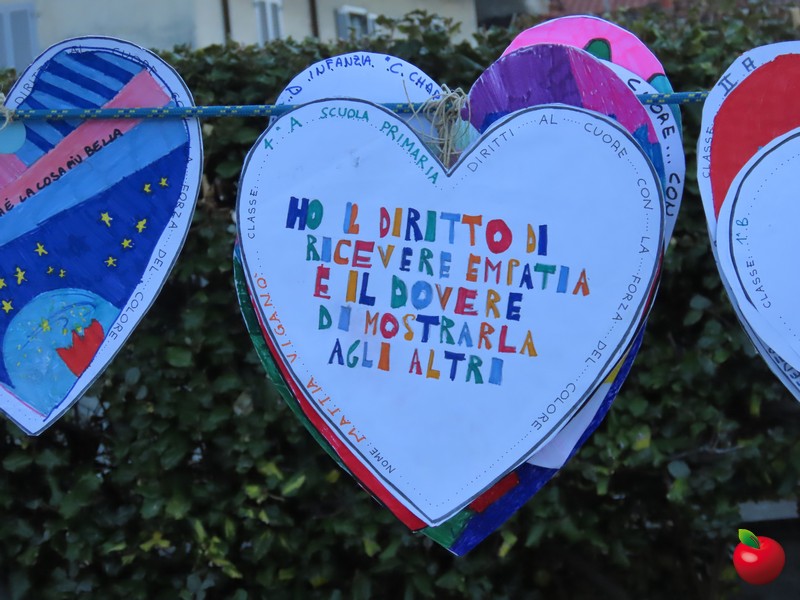 DIRITTI AL CUORE
È LA COSA PIÙ BELLA
LA FORZA DEL COLORE
D'INFANZIA "C. CHAP
CLASSE: 1^A SCUOLA PRIMARIA
DIRITTI AL CUORE CON LA FORZA DEL COLORE
HO IL DIRITTO DI
RICEVERE EMPATIA
E IL DOVERE
DI MOSTRARLA
AGLI ALTRI
NOME MATTIA VIGANO'
CON
CLASSE: II A
CLASSE: 1^B